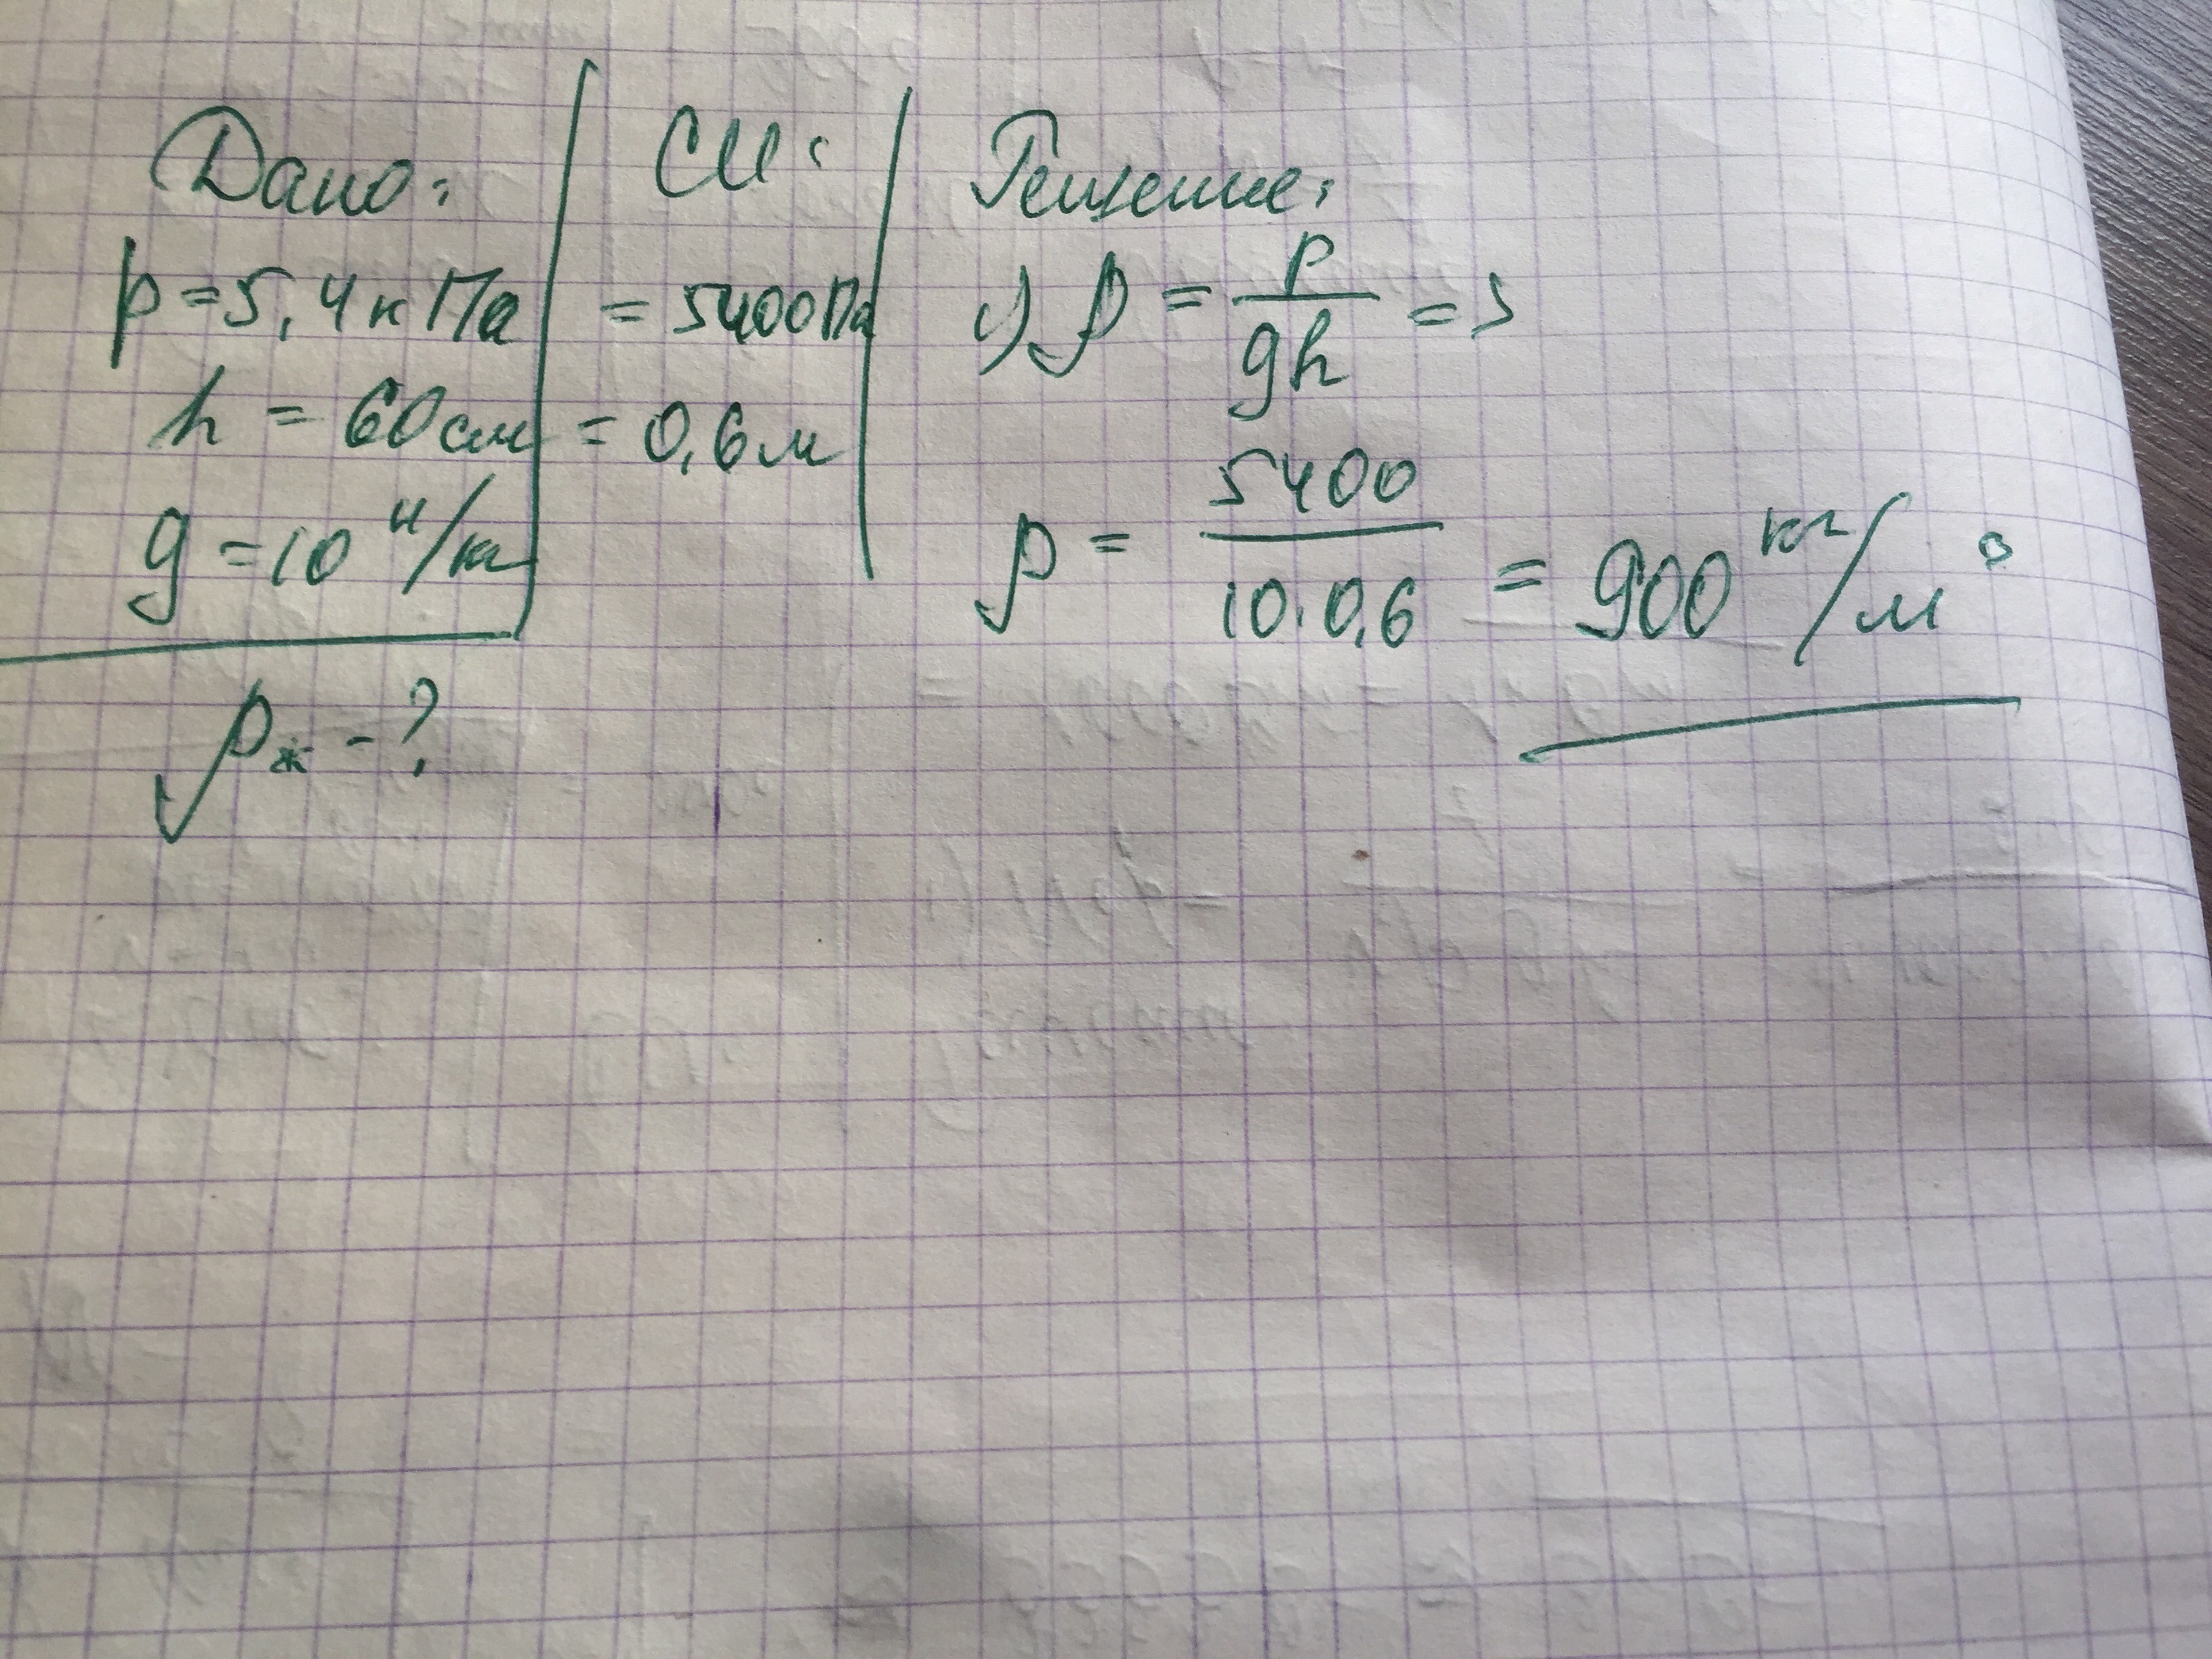 Дано:
p = 5,4 кПа
h = 60 см
g = 10 Н/кг
ρж - ?
СИ:
= 5400 Па
= 0,6 м
Решение:
1) ρ = p/gh =>
ρ = 5400/10·0,6 = 900 кг/м³